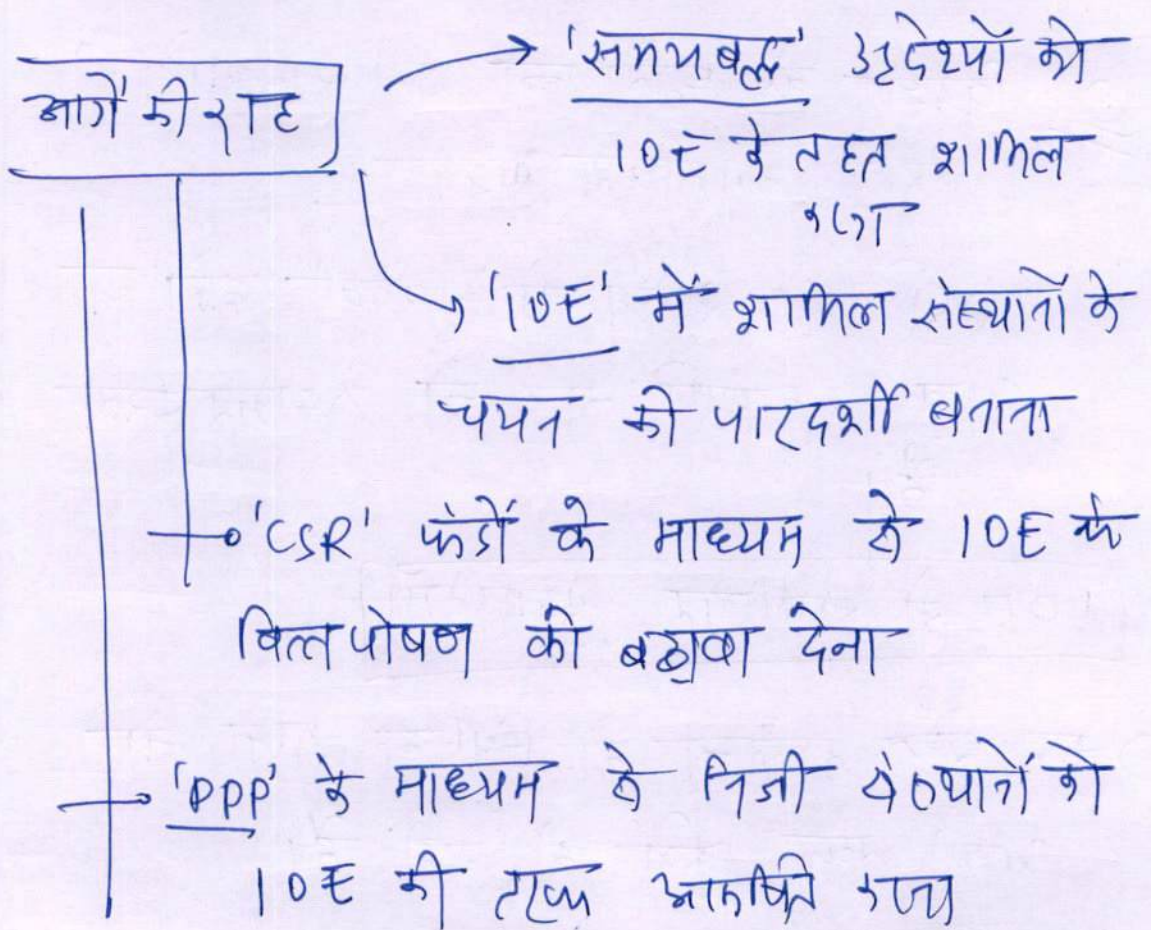 आगे की राह
'समयबद्ध' उद्देश्यों को
IOE के तहत शामिल
करना
'IOE' में शामिल संस्थानों के
चयन को पारदर्शी बनाना
'CSR' फंडों के माध्यम से IOE के
वित्तपोषण को बढ़ावा देना
'PPP' के माध्यम से निजी संस्थानों को
IOE की तरफ आकर्षित करना